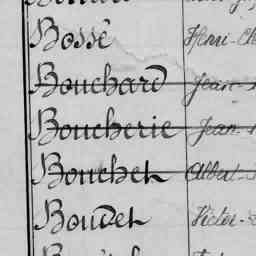 Bossé Henri-
Bouchard Jean-
Boucherie Jean-
Bouchet Albert-
Boudet Victor-